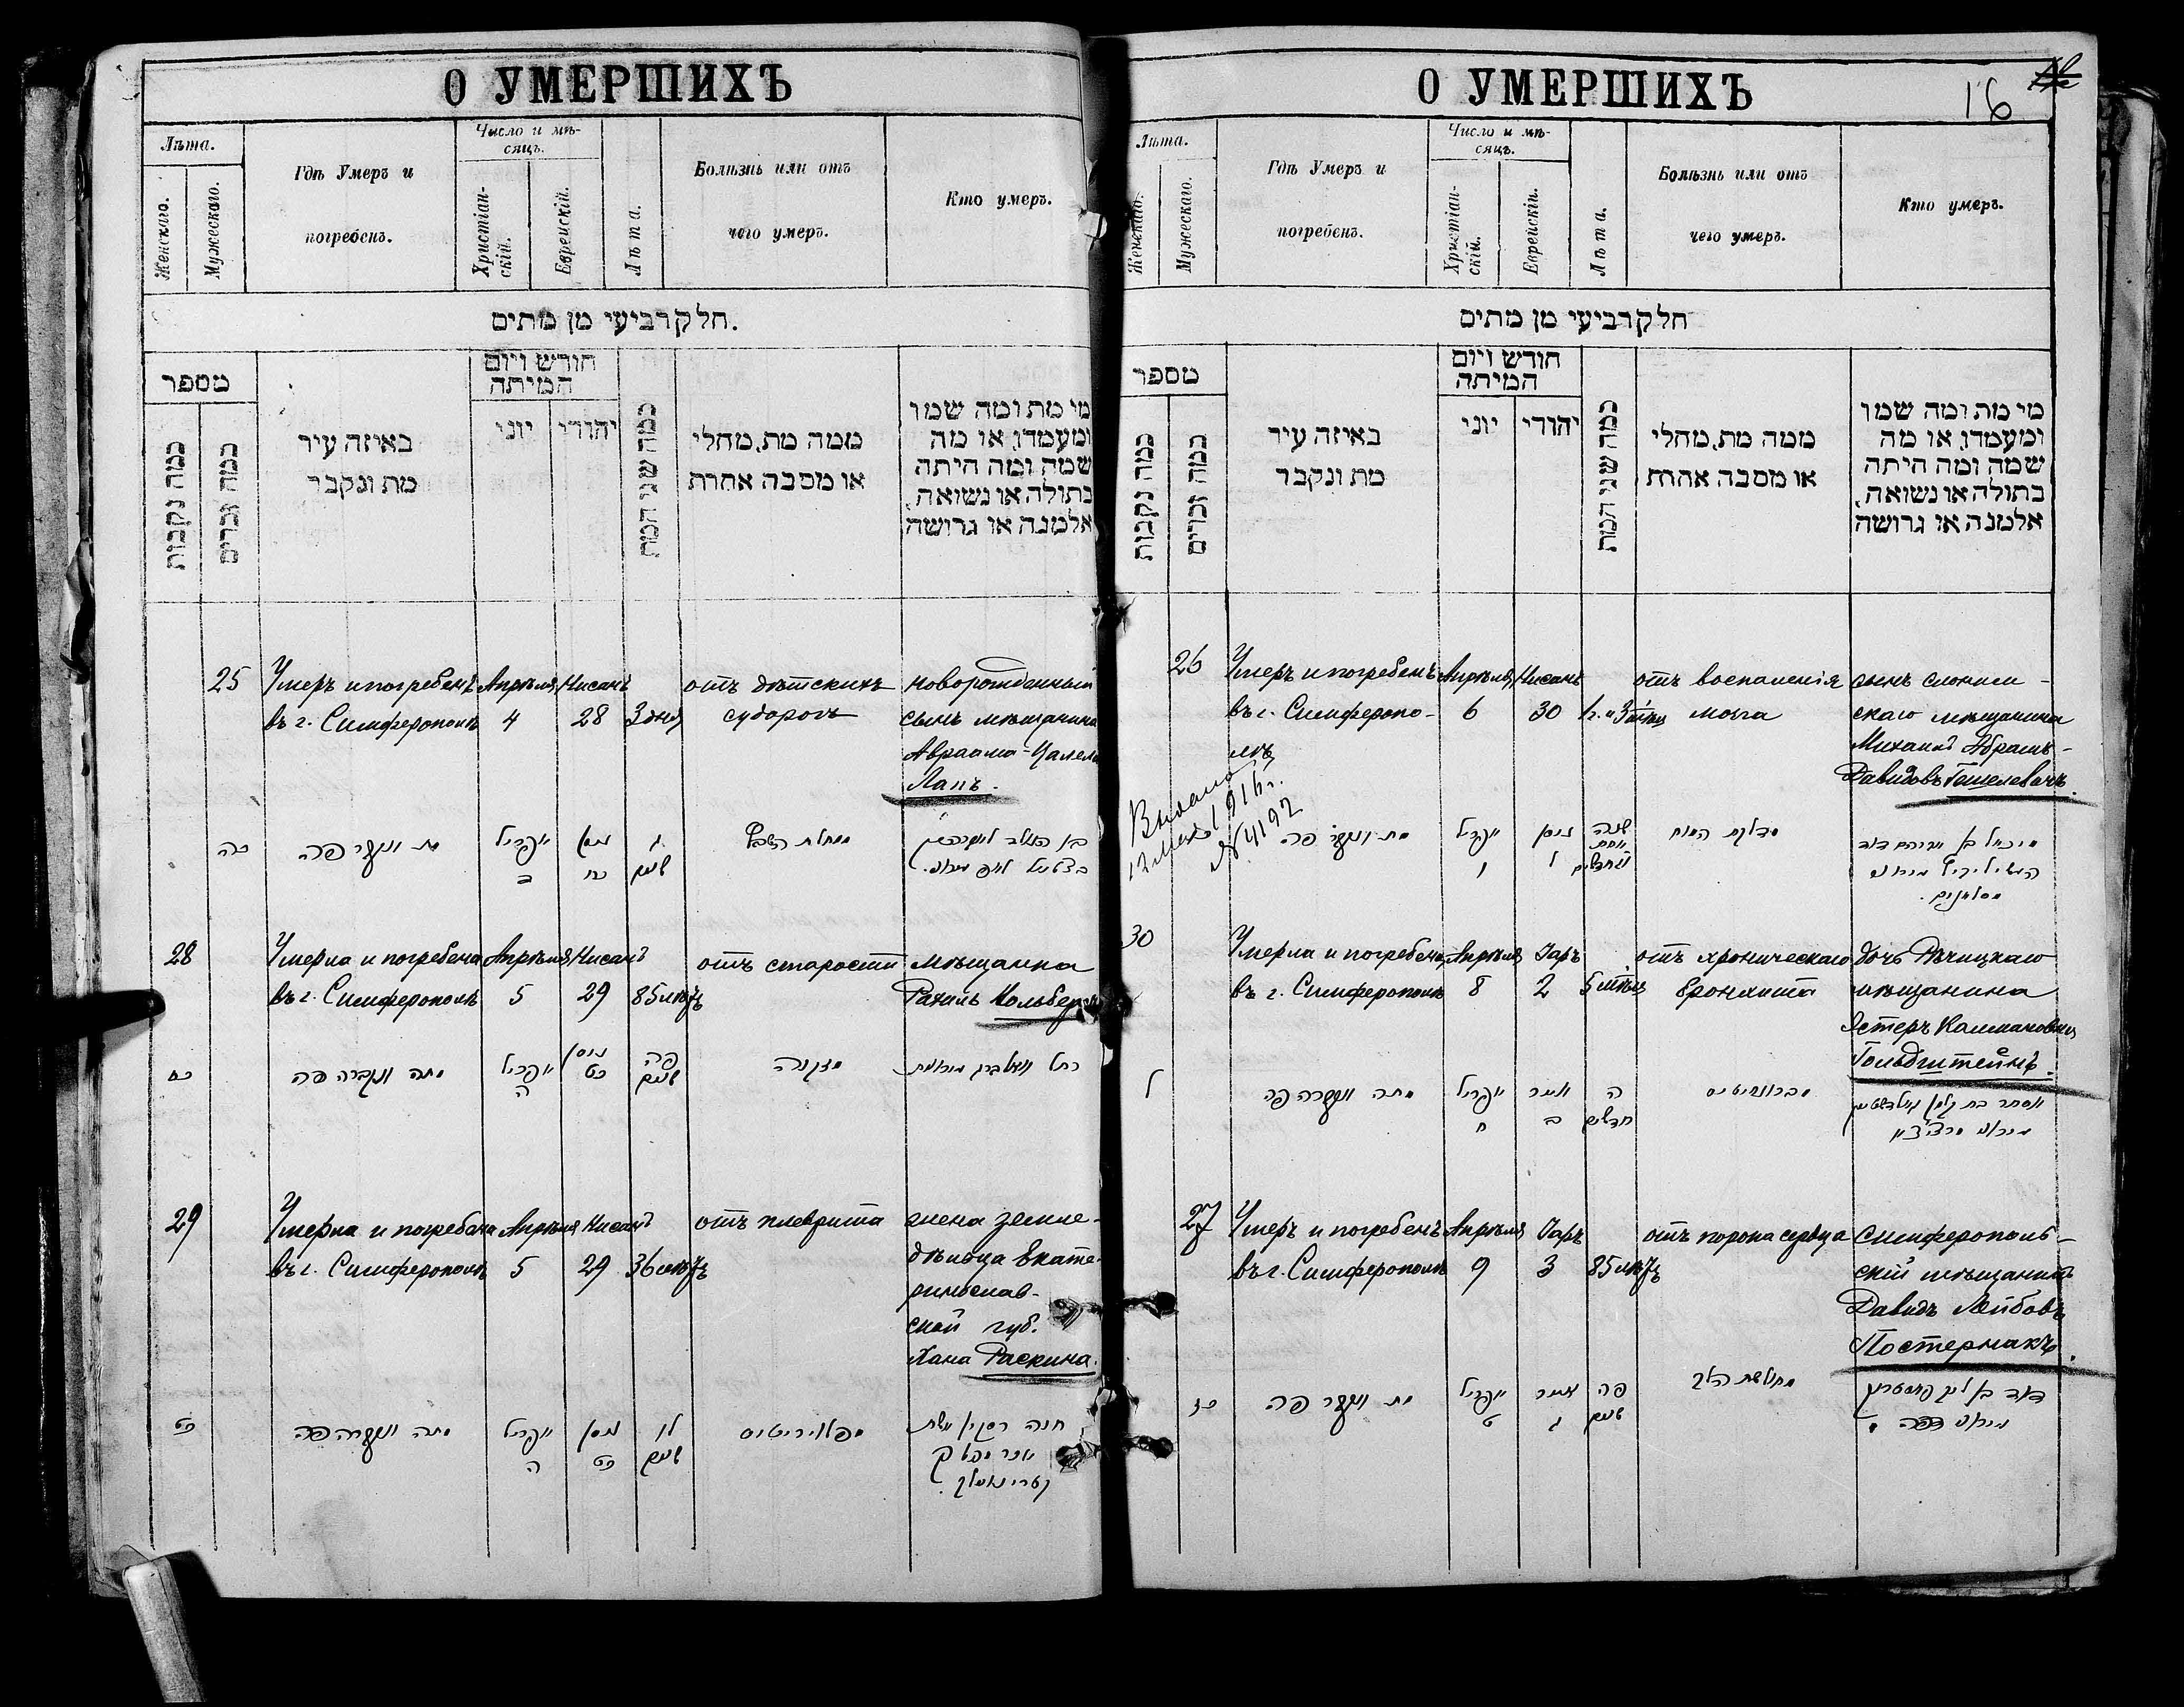 О УМЕРШИХЪ
Лѣта.
Женскаго.
Мужескаго.
Гдѣ Умеръ и
погребенъ.
Число и мѣ-
сяцъ.
Христіан-
скій.
Еврейскій.
Лѣта.
Болѣзнь или отъ
чего умеръ.
Кто умеръ.
חלק רביעי מן מתים.
מספר
כמה נקבות
כמה זכרים
באיזה עיר
מת ונקבר
חודש ויום
המיתה
יוני
יהודי
כמה שני המת
ממה מת, מחלי
או מסבה אחרת
מי מת ומה שמו
ומעמדו, או מה
שמה ומה היתה
בתולה או נשואה,
אלמנה או גרושה
25 Умеръ и погребенъ Апрѣля Нисанъ отъ дѣтскихъ новорожденный
въ г. Симферополѣ 4 28 3 дня судорогъ сынъ мѣщанина
Авраама-Цалела
Лапъ.
כה מת ונקבר פה אפריל ניסן ג
כח
28 Умерла и погребена Апрѣля Нисанъ отъ старости мѣщанка
въ г. Симферополѣ 5 29 85 лѣтъ Рахиль Кольберг
כח מתה ונקברה פה אפריל ניסן פה מזקנה
ה כט שנים
29 Умерла и погребена Апрѣля Нисанъ отъ плеврита жена земле-
въ г. Симферополѣ 5 29 36 лѣтъ дѣльца Екате-
ринослав-
ской губ.
Хана Раскина.
כט מתה ונקברה פה אפריל ניסן לו חנה רסקין אשת
ה כט שנים
О УМЕРШИХЪ
16
Лѣта.
Женскаго.
Мужескаго.
Гдѣ Умеръ и
погребенъ.
Число и мѣ-
сяцъ.
Христіан-
скій.
Еврейскій.
Лѣта.
Болѣзнь или отъ
чего умеръ.
Кто умеръ.
חלק רביעי מן מתים
מספר
כמה נקבות
כמה זכרים
באיזה עיר
מת ונקבר
חודש ויום
המיתה
יוני
יהודי
כמה שני המת
ממה מת, מחלי
או מסבה אחרת
מי מת ומה שמו
ומעמדו, או מה
שמה ומה היתה
בתולה או נשואה,
אלמנה או גרושה
26 Умеръ и погребенъ Апрѣля Нисанъ отъ воспаленія сынъ слоним-
въ г. Симферопо- 6 30 1 г. и 3 мѣц мозга скаго мѣщанина
лѣ Михаилъ Абрамъ-
Давидовъ Гешелевичъ.
1916 г.
№ 4192
מת ונקבר פה אפריל ניסן שנה
ו ל
30 Умерла и погребена Апрѣля Іаръ отъ хроническаго дочь Рѣчицкаго
въ г. Симферополѣ 8 2 5 мѣц бронхита мѣщанина
Эстеръ Калмановна
Гольдштейнъ.
ל מתה ונקברה פה אפריל אייר ה אסתר בת קלמן גולדשטיין
ח ב חדשים
27 Умеръ и погребенъ Апрѣля Іаръ отъ порока сердца симферополь-
въ г. Симферополѣ 9 3 85 лѣтъ скій мѣщанинъ
Давидъ Лейбовъ
Постернакъ.
כז מת ונקבר פה אפריל אייר פה מחולשת הלב דוד בן ליב פוסטרנק
ט ג שנים